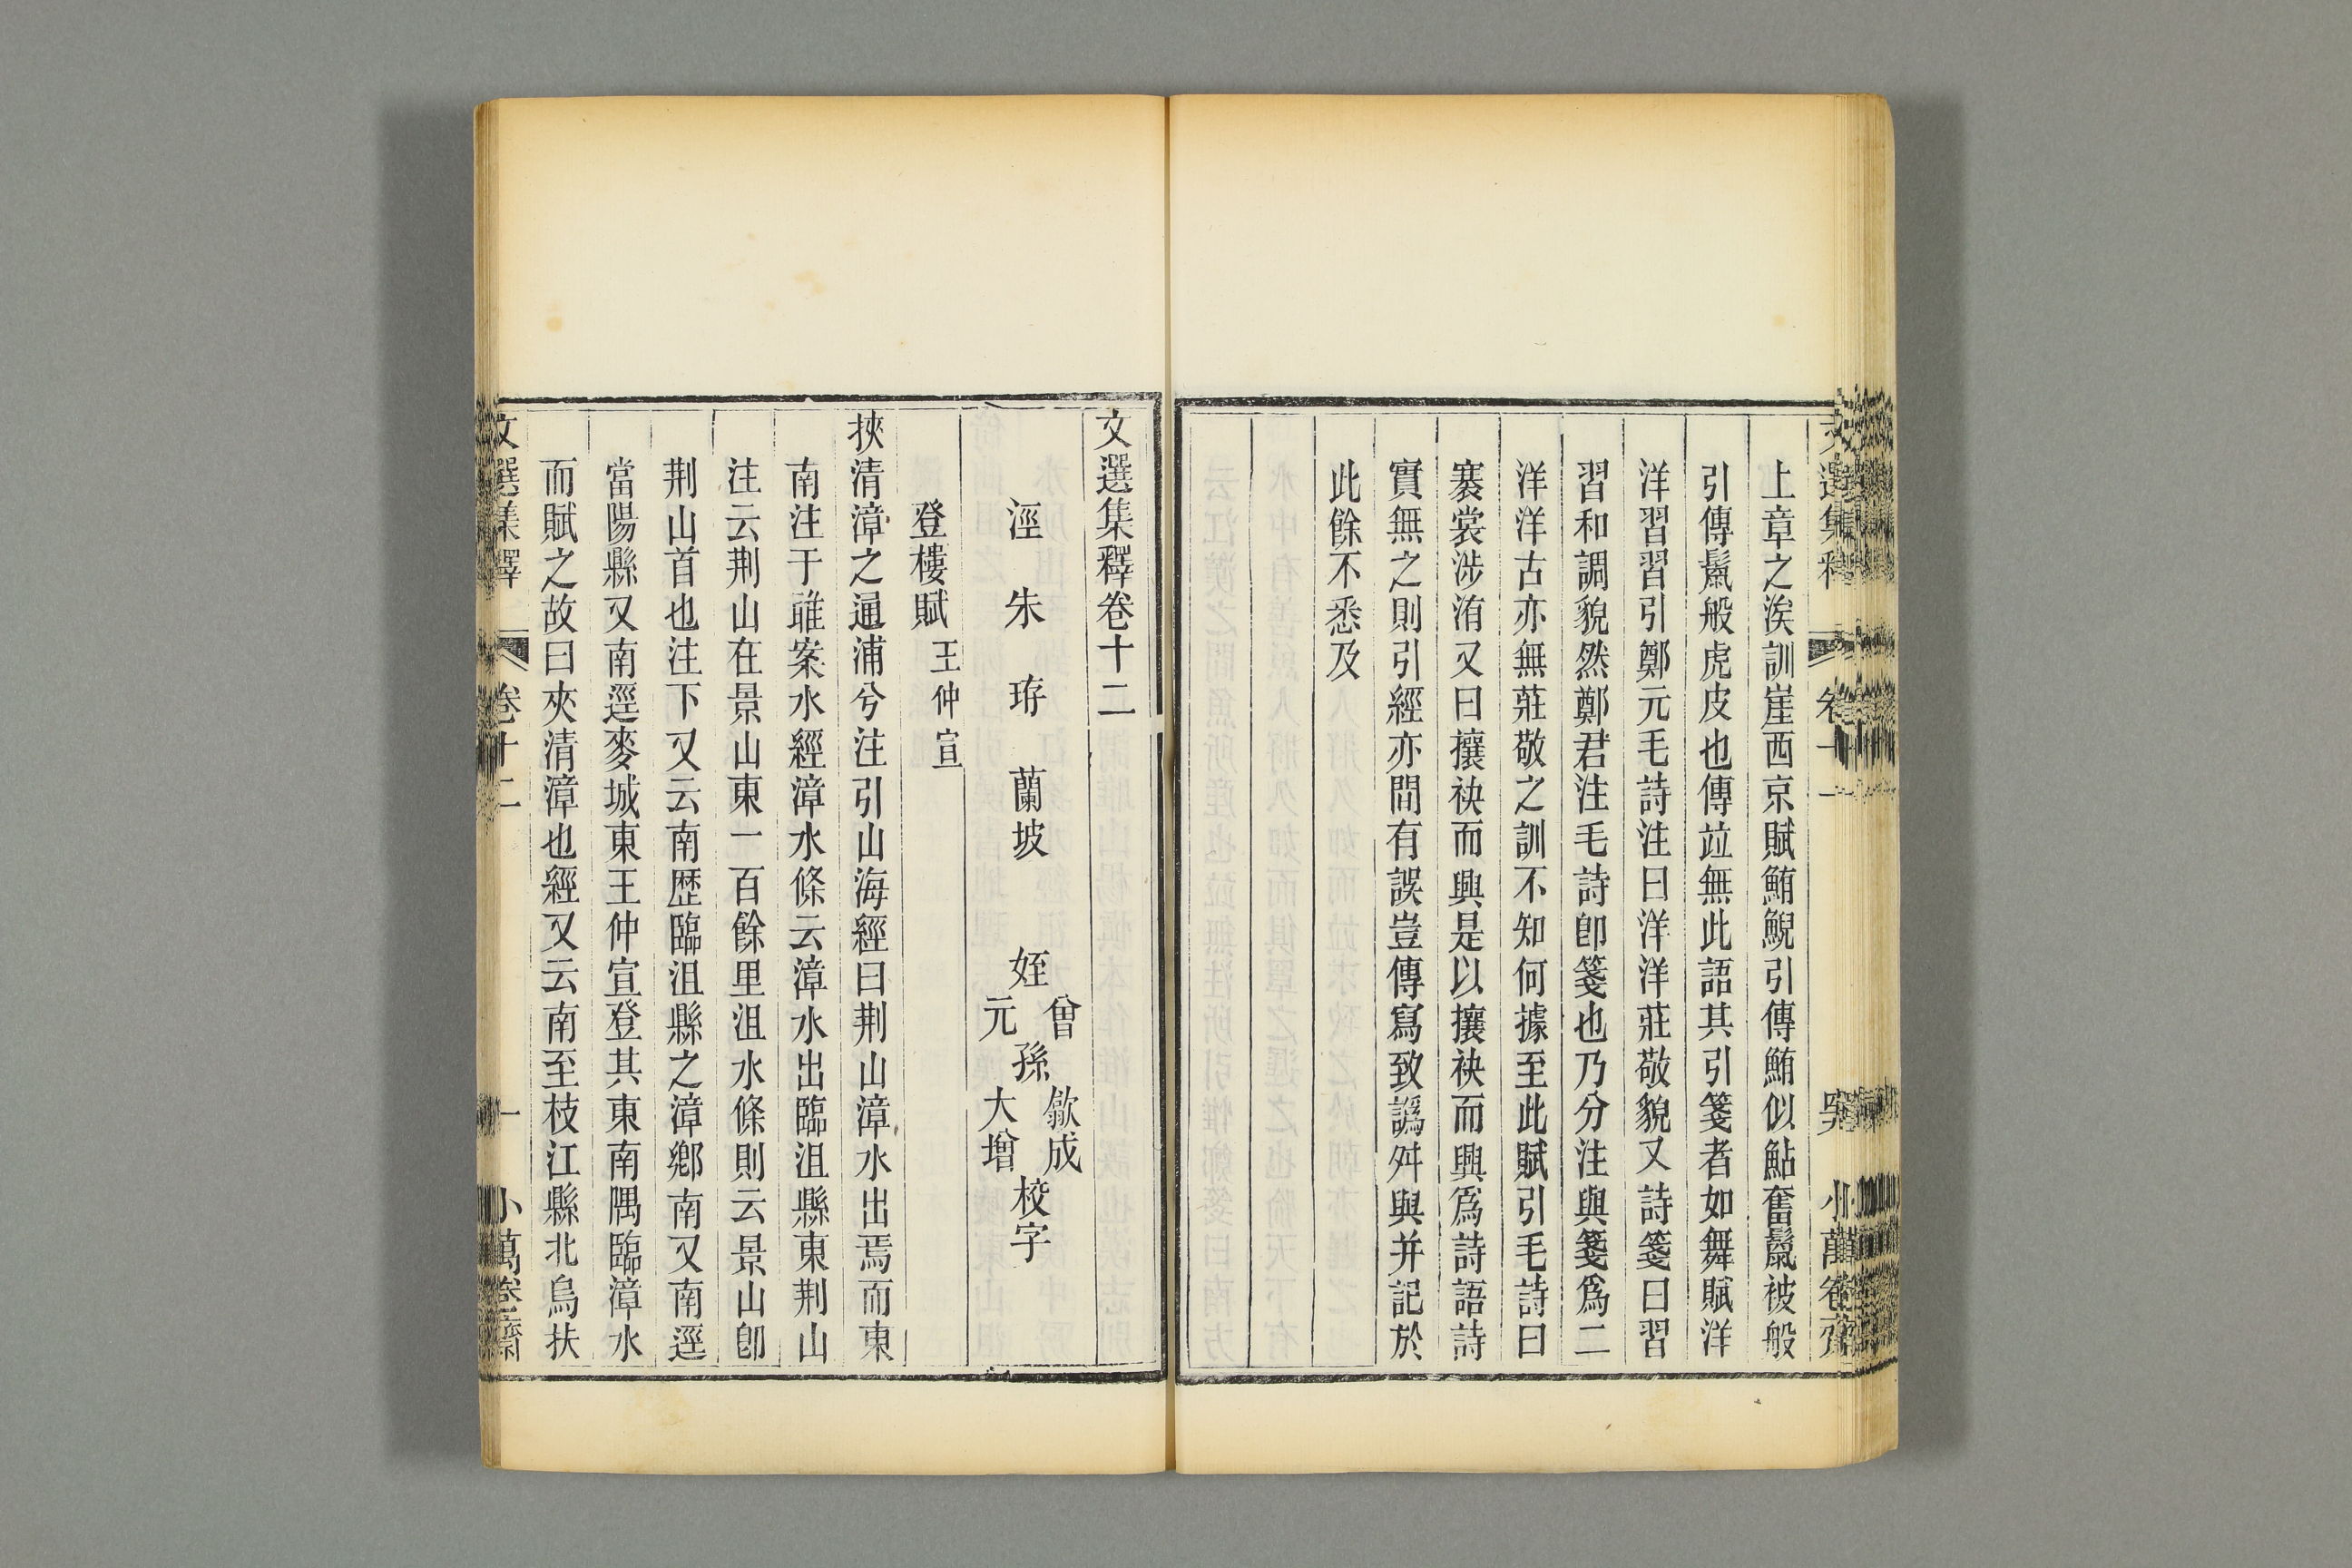 上章之涘訓崖西京賦鮪鯢引傳鮪似鮎奮鬣被般
引傳鬣般虎皮也傳竝無此語其引箋者如舞賦洋
洋習習引鄭元毛詩注曰洋洋莊敬貌又詩箋曰習
習和調貌然鄭君注毛詩卽箋也乃分注與箋爲二
洋洋古亦無莊敬之訓不知何據至此賦引毛詩曰
褰裳涉洧又曰攘袂而興是以攘袂而興爲詩語詩
實無之則引經亦間有誤豈傳寫致譌舛與并記於
此餘不悉及
文選集釋卷十二
涇 朱 珔 蘭坡 姪 曾 元 孫 歙成 大增 校字
登樓賦 王仲宣
挾清漳之通浦兮注引山海經曰荆山漳水出焉而東
南注于雎案水經漳水條云漳水出臨沮縣東荆山
注云荆山在景山東一百餘里沮水條則云景山卽
荆山首也注下又云南歷臨沮縣之漳鄉南又南逕
當陽縣又南逕麥城東王仲宣登其東南隅臨漳水
而賦之故曰夾清漳也經又云南至枝江縣北烏扶
文選集釋 卷十二 一 小萬卷齋